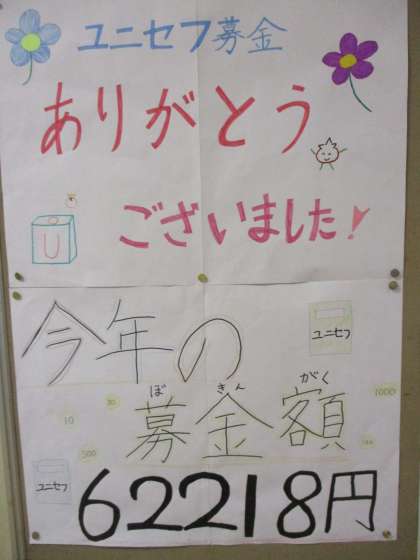 ユニセフ募金
ありがとう
ございました!
U
今年の
ユニセフ
ぼ きん がく
募金額
10
500
1000
ユニセフ
62218円